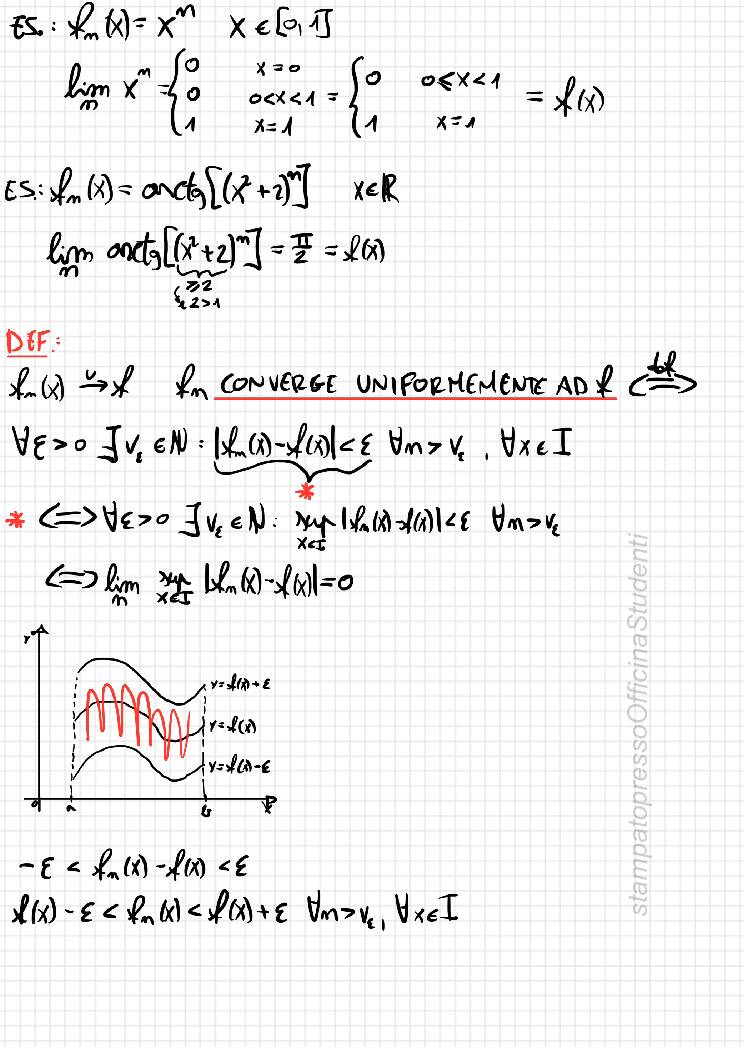 ES.: fₙ(x) = xⁿ x ∈ [0,1]
lim_n xⁿ = { 0 x=0; 0 0<x<1; 1 x=1 = { 0 0⩽x<1; 1 x=1 = f(x)
ES.: fₙ(x) = arctg[(x²+2)ⁿ] x∈ℝ
lim_n arctg[(x²+2)ⁿ] = π/2 = f(x)
⩾2
e 2>1
DEF.:
fₙ(x) →ᵘ f fₙ CONVERGE UNIFORMEMENTE AD f ⇐def⇒
∀ε>0 ∃ν_ε∈ℕ : |fₙ(x)-f(x)|<ε ∀n>ν_ε , ∀x∈I
*
* ⇐⇒ ∀ε>0 ∃ν_ε∈ℕ : sup_{x∈I} |fₙ(x)-f(x)|<ε ∀n>ν_ε
⇐⇒ lim_n sup_{x∈I} |fₙ(x)-f(x)|=0
y
y=f(x)+ε
y=f(x)
y=f(x)-ε
0 a b x
-ε < fₙ(x)-f(x) < ε
f(x)-ε < fₙ(x) < f(x)+ε ∀n>ν_ε, ∀x∈I
stampatopressoOfficinaStudenti